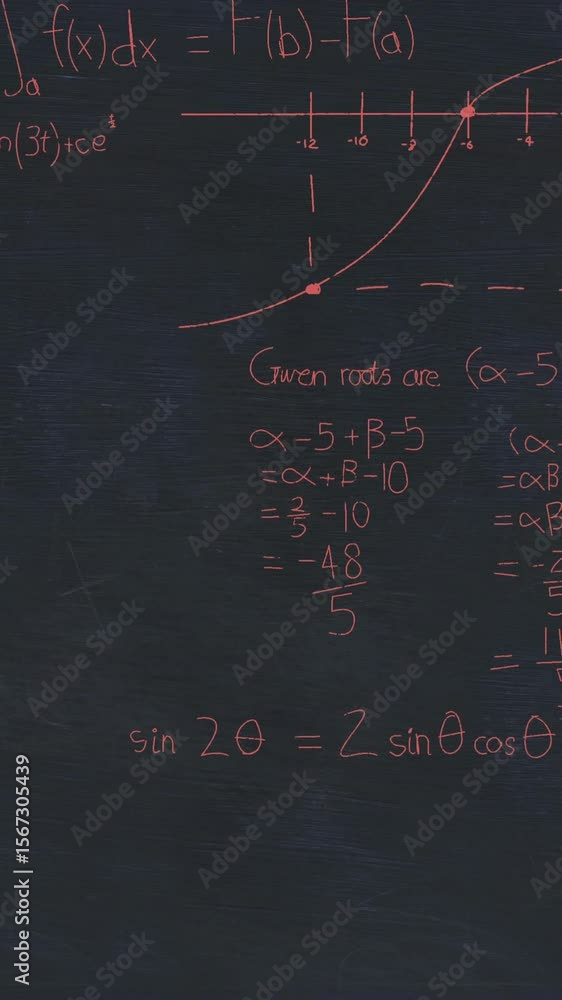 ∫a f(x)dx = F(b)-F(a)
n(3t)+ce
-12 -10 -8 -6 -4
Given roots are (α-5
α-5+β-5
=α+β-10
=2/5-10
=-48/5
(α-
=αβ
=αβ
=-2/5
=11
sin 2θ = 2 sinθ cosθ
Adobe Stock | #1567305439